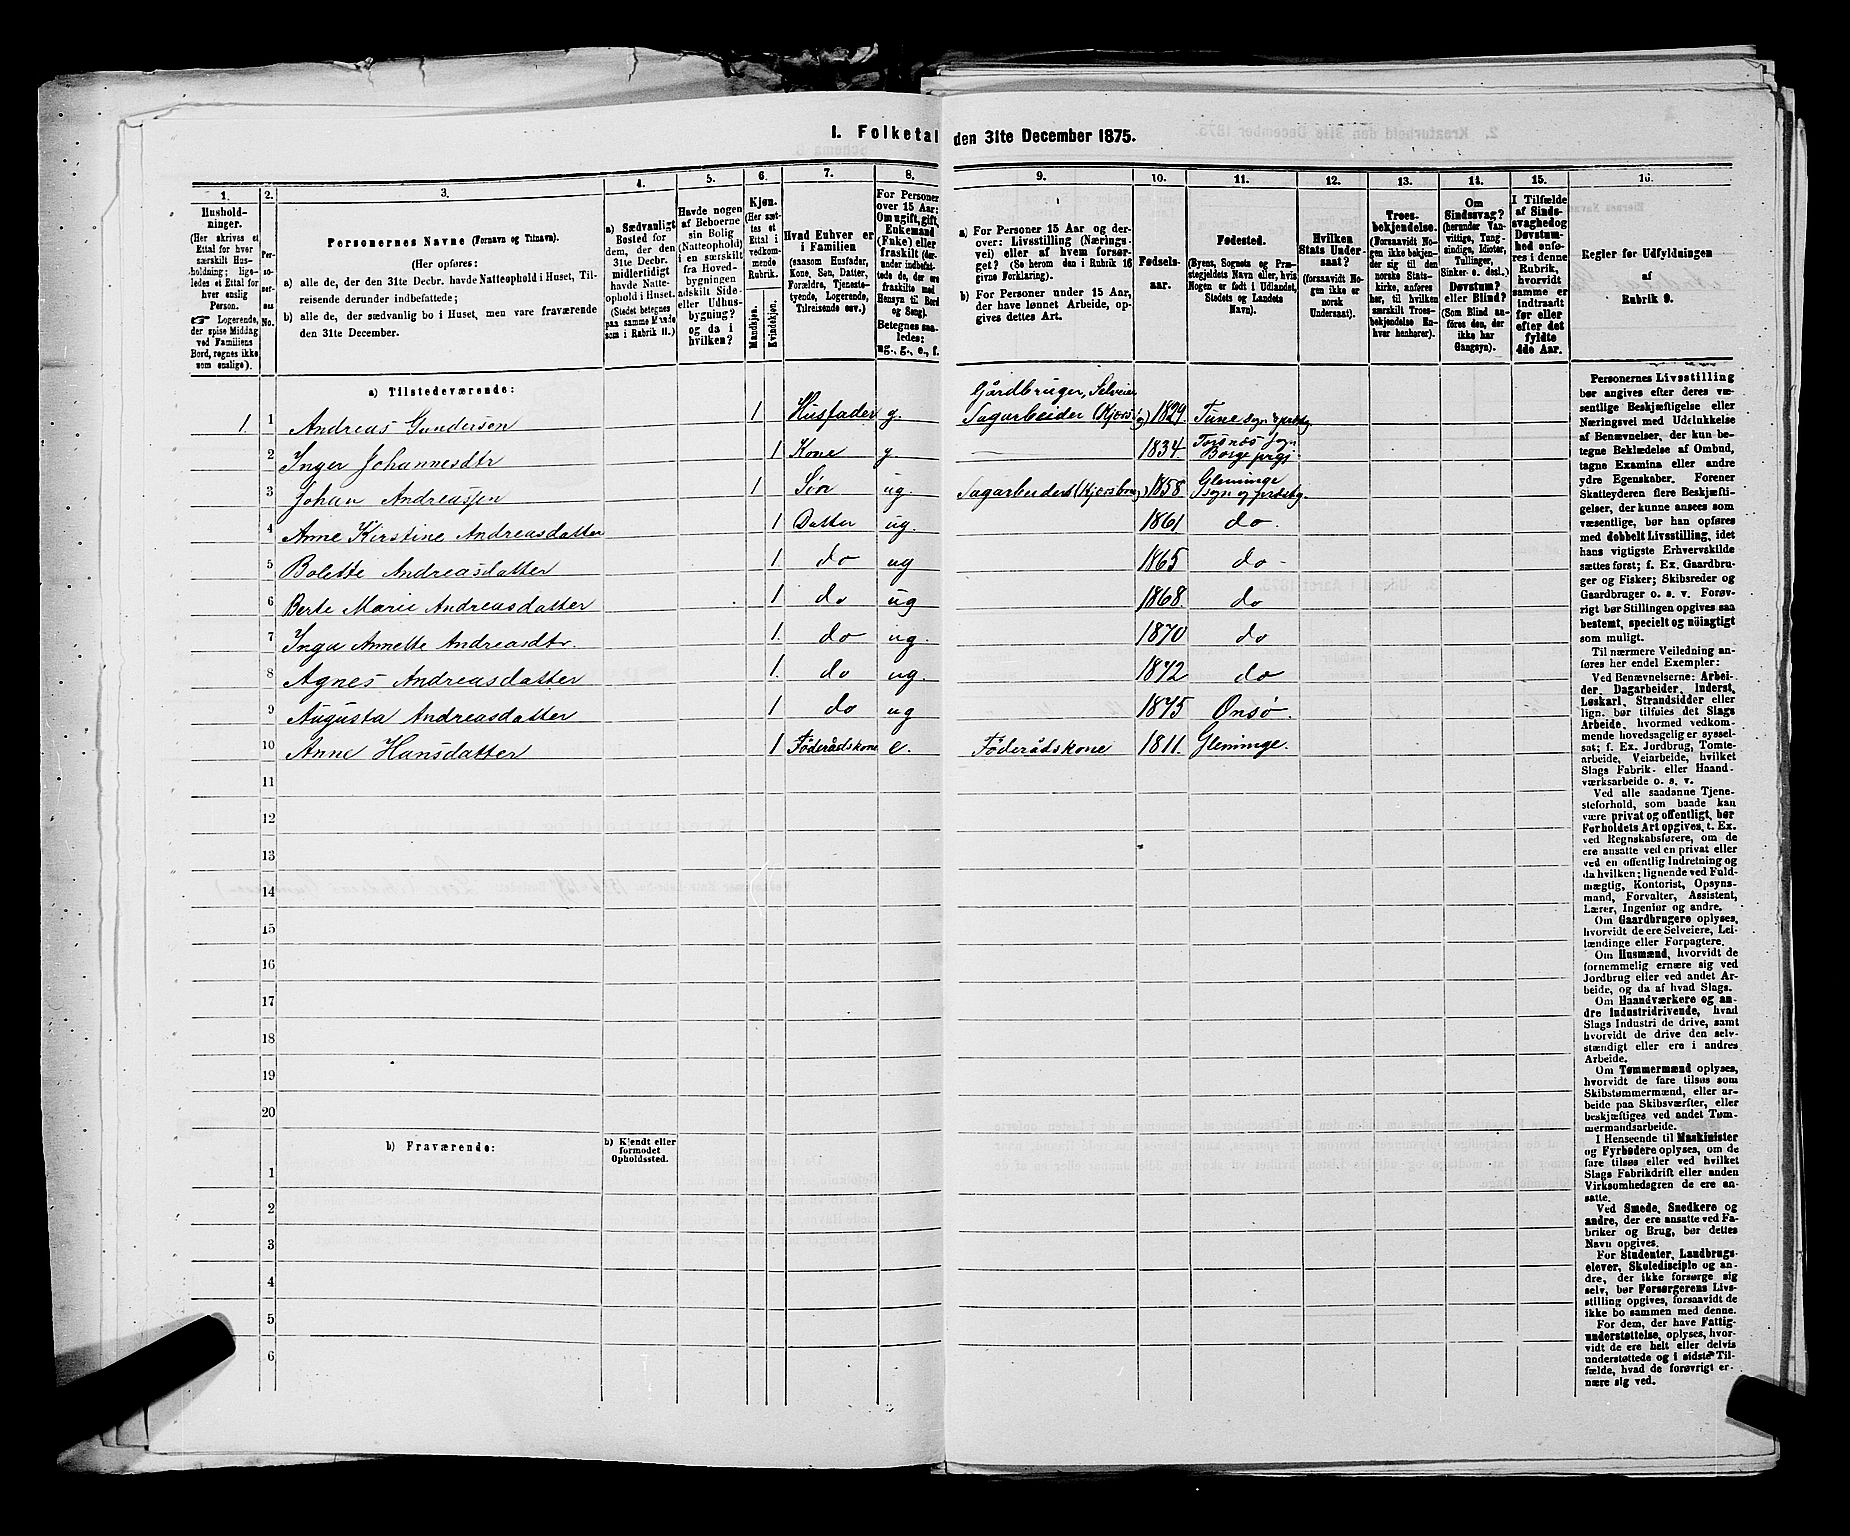 I. Folketal den 31te December 1875.
1.
Hushold-
ninger.
(Her skrives et
Ettal for hver
særskilt Hus-
holdning; lige-
ledes et Ettal for
hver enslig
Person.
☞ Logerende,
der spise Middag
ved Familiens
Bord, regnes ikke
som enslige).
2.
Per-
so-
ner-
nes
No.
3.
Personernes Navne (Fornavn og Tilnavn).
(Her opføres:
a) alle de, der den 31te Decbr. havde Natteophold i Huset, Til-
reisende derunder indbefattede;
b) alle de, der sædvanlig bo i Huset, men vare fraværende
den 31te December.
4.
a) Sædvanligt
Bosted for
dem, der den
31te Decbr.
midlertidigt
havde Natte-
ophold i Huset.
(Stedet betegnes
paa samme Maade
som i Rubrik 11.)
5.
Havde nogen
af Beboerne
sin Bolig
(Natteophold)
i en særskilt
fra Hoved-
bygningen
adskilt Side-
eller Udhus-
bygning?
og da i
hvilken?
6.
Kjøn.
(Her sæt-
tes et
Ettal i
vedkom-
mende
Rubrik.
Mandkjøn.
Kvindekjøn.
7.
Hvad Enhver er
i Familien
(saasom Husfader,
Kone, Søn, Datter,
Forældre, Tjeneste-
tyende, Logerende,
Tilreisende osv.)
8.
For Personer
over 15 Aar:
Om ugift, gift,
Enkemand
(Enke) eller
fraskilt
Hensyn til Bord
og Seng).
Betegnes saa-
ledes:
ug., g., e., f.
9.
a) For Personer 15 Aar og der-
over: Livsstilling (Nærings-
vei) eller af hvem forsør-
get? (Se herom den i Rubrik 16
givne Forklaring).
b) For Personer under 15 Aar,
der have lønnet Arbeide, op-
gives dettes Art.
10.
Fødsels-
aar.
11.
Fødested.
(Byens, Sognets og Præ-
stegjeldets Navn eller, hvis
Nogen er født i Udlandet,
Stedets og Landets
Navn).
12.
Hvilken
Stats Under-
saat?
(forsaavidt No-
gen ikke er
norsk
Undersaat).
13.
Troes-
bekjendelse.
(Forsaavidt No-
gen ikke bekjen-
der sig til den
norske Stats-
kirke, anføres
her, til hvilken
særskilt Troes-
bekjendelse En-
hver henhører).
14.
Om
Sindssvag?
(herunder Van-
vittige, Tung-
sindige, Idioter,
Tullinger,
Sinker o. desl.)
Døvstum?
eller Blind?
(Som Blind an-
føres den, der
ikke har
Gangsyn).
15.
I Tilfælde
af Sinds-
svaghed og
Døvstum-
hed anfø-
res i denne
Rubrik,
hvorvidt
samme er
indtraadt
før eller
efter det
fyldte
4de Aar.
16.
Regler for Udfyldningen
af
Rubrik 9.
a) Tilstedeværende:
1. 1 Andreas Gundersen 1 Husfader g. Gårdbruger, Selveier Sagarbeider 1829. Tune sogn
2 Inger Johannesdtr 1 Kone g. 1834. Torsnæs sogn Borge prgj
3 Johan Andreassen 1 Søn ug. Sagarbeider (Kjærsbrug) 1858 Glemminge sogn og præstg.
4 Anne Kirstine Andreasdatter 1 Datter ug. 1861 do.
5 Bolette Andreasdatter 1. do ug 1865 do
6 Berte Marie Andreasdatter 1. do ug 1868. do
7 Inga Annette Andreasdtr. 1. do ug. 1870 do
8 Agnes Andreasdatter 1. do ug. 1872 do
9 Augusta Andreasdatter 1 do ug 1875 Onsø.
10 Anne Hansdatter 1 Föderådskone e. Föderådskone 1811. Gleminge.
11
12
13
14
15
16
17
18
19
20
b) Fraværende:
b) Kjendt eller
formodet
Opholdssted.
1
2
3
4
5
6
Personernes Livsstilling
bør angives efter deres væ-
sentlige Beskjæftigelse eller
Næringsvei med Udelukkelse
af Benævnelser, der kun be-
tegne Beklædelse af Ombud,
tagne Examina eller andre
ydre Egenskaber. Forener
Skatteyderen flere Beskjæfti-
gelser, der kunne ansees som
væsentlige, bør han opføres
med dobbelt Livsstilling, idet
hans vigtigste Erhvervskilde
sættes først; f. Ex. Gaardbru-
ger og Fisker; Skibsreder og
Gaardbruger o. s. v. Forøv-
rigt bør Stillingen opgives saa
bestemt, specielt og nøiagtigt
som muligt.
Til nærmere Veiledning an-
føres her endel Exempler:
Ved Benævnelserne: Arbei-
der, Dagarbeider, Inderst,
Løskarl, Strandsidder eller
lign. bør tilføies det Slags
Arbeide, hvormed vedkom-
mende hovedsagelig er syssel-
sat; f. Ex. Jordbrug, Tomte-
arbeide, Veiarbeide, hvilket
Slags Fabrik- eller Haand-
værksarbeide o. s. v.
Ved alle saadanne Tjene-
steforhold, som baade kan
være privat og offentligt, bør
Forholdets Art opgives, t. Ex.
ved Regnskabsførere, om de
ere ansatte ved en privat eller
ved en offentlig Indretning og
da hvilken; lignende ved Fuld-
mægtig, Kontorist, Opsyns-
mand, Forvalter, Assistent,
Lærer, Ingeniør og andre.
Om Gaardbrugere oplyses,
hvorvidt de ere Selveiere, Lei-
lændinge eller Forpagtere.
Om Husmænd, hvorvidt de
fornemmelig ernære sig ved
Jordbrug eller ved andet Ar-
beide, og da af hvad Slags.
Om Haandværkere og an-
dre Industridrivende, hvad
Slags Industri de drive, samt
hvorvidt de drive den selv-
stændigt eller ere i andres
Arbeide.
Om Tømmermænd oplyses,
hvorvidt de fare tilsøs som
Skibstømmermænd, eller ar-
beide paa Skibsværfter, eller
beskjæftiges ved andet Tøm-
mermandsarbeide.
I Henseende til Maskinister
og Fyrbødere oplyses, om de
fare tilsøs eller ved hvilket
Slags Fabrikdrift eller anden
Virksomhedsgren de ere an-
satte.
Ved Smede, Snedkere og
andre, der ere ansatte ved Fa-
briker og Brug, bør dettes
Navn opgives.
For Studenter, Landbrugs-
elever, Skoledisciple og an-
dre, der ikke forsørge sig
selv, bør Forsørgerens Livs-
stilling opgives, forsaavidt de
ikke bo sammen med denne.
For dem, der have Fattig-
understøttelse, oplyses, hvor-
vidt de ere helt eller delvis
understøttede og i sidste Til-
fælde, hvad de forøvrigt er-
nære sig ved.